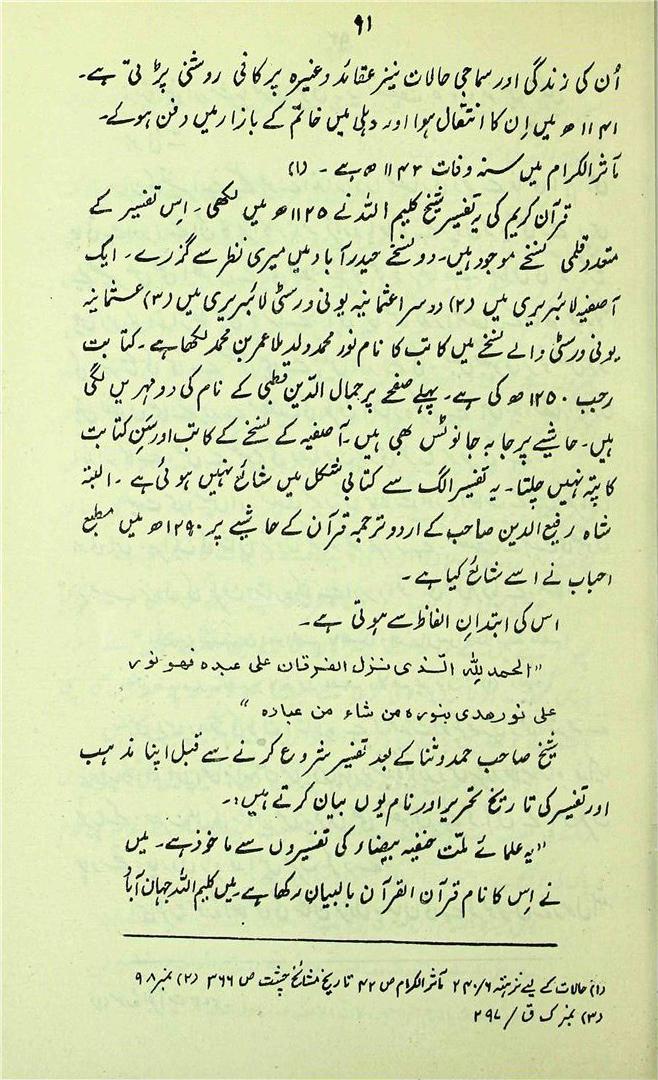 ۹۱
اُن کی زندگی اور سماجی حالات نیز عقائد وغیرہ پر کافی روشنی پڑتی ہے۔
۱۱۴۱ھ میں اِن کا انتقال ہوا اور دہلی میں خانم کے بازار میں دفن ہوئے۔
مآثر الکرام میں سنہ وفات ۱۱۴۲ھ ہے۔ (۱)
قرآن کریم کی یہ تفسیر شیخ کلیم اللہ نے ۱۱۲۵ھ میں لکھی۔ اِس تفسیر کے
متعدد قلمی نسخے موجود ہیں۔ دو نسخے حیدرآباد میں میری نظر سے گزرے۔ ایک
آصفیہ لائبریری میں (۲) دوسرا عثمانیہ یونی ورسٹی لائبریری میں (۳) عثمانیہ
یونی ورسٹی والے نسخے میں کاتب کا نام نور محمد ولد ملا عمر بن محمد لکھا ہے۔ کتابت
رجب ۱۲۵۰ھ کی ہے۔ پہلے صفحے پر جمال الدّین قطبی کے نام کی دو مہریں لگی
ہیں۔ حاشیے پر جا بہ جا نوٹس بھی ہیں۔ آصفیہ کے نسخے کے کاتب اور سَنِ کتابت
کا پتہ نہیں چلتا۔ یہ تفسیر الگ سے کتابی شکل میں شائع نہیں ہوئی ہے۔ البتہ
شاہ رفیع الدین صاحب کے اردو ترجمہ قرآن کے حاشیے پر ۱۲۹۰ھ میں مطبع
احباب نے اسے شائع کیا ہے۔
اس کی ابتدا اِن الفاظ سے ہوتی ہے۔
"الحمد للّٰہ الّذی نزل الفرقان علی عبدہ فھو نور
علی نور ھدی بنورہ من شاء من عبادہ"
شیخ صاحب حمد و ثنا کے بعد تفسیر شروع کرنے سے قبل اپنا مذہب
اور تفسیر کی تاریخ تحریر اور نام یوں بیان کرتے ہیں:۔
"یہ علمائے ملّت حنفیہ بیضاء کی تفسیروں سے ماخوذ ہے۔ میں
نے اِس کا نام قرآن القرآن بالبیان رکھا ہے۔ میں کلیم اللہ جہان آباد
(۱) حالات کے لیے نزہتہ ۲۴۰/۶ مآثر الکرام ص ۴۲ تاریخ مشائخ چشت ص ۳۶۶ (۲) نمبر ۹۸
(۳) نمبر ک ق / ۲۹۷